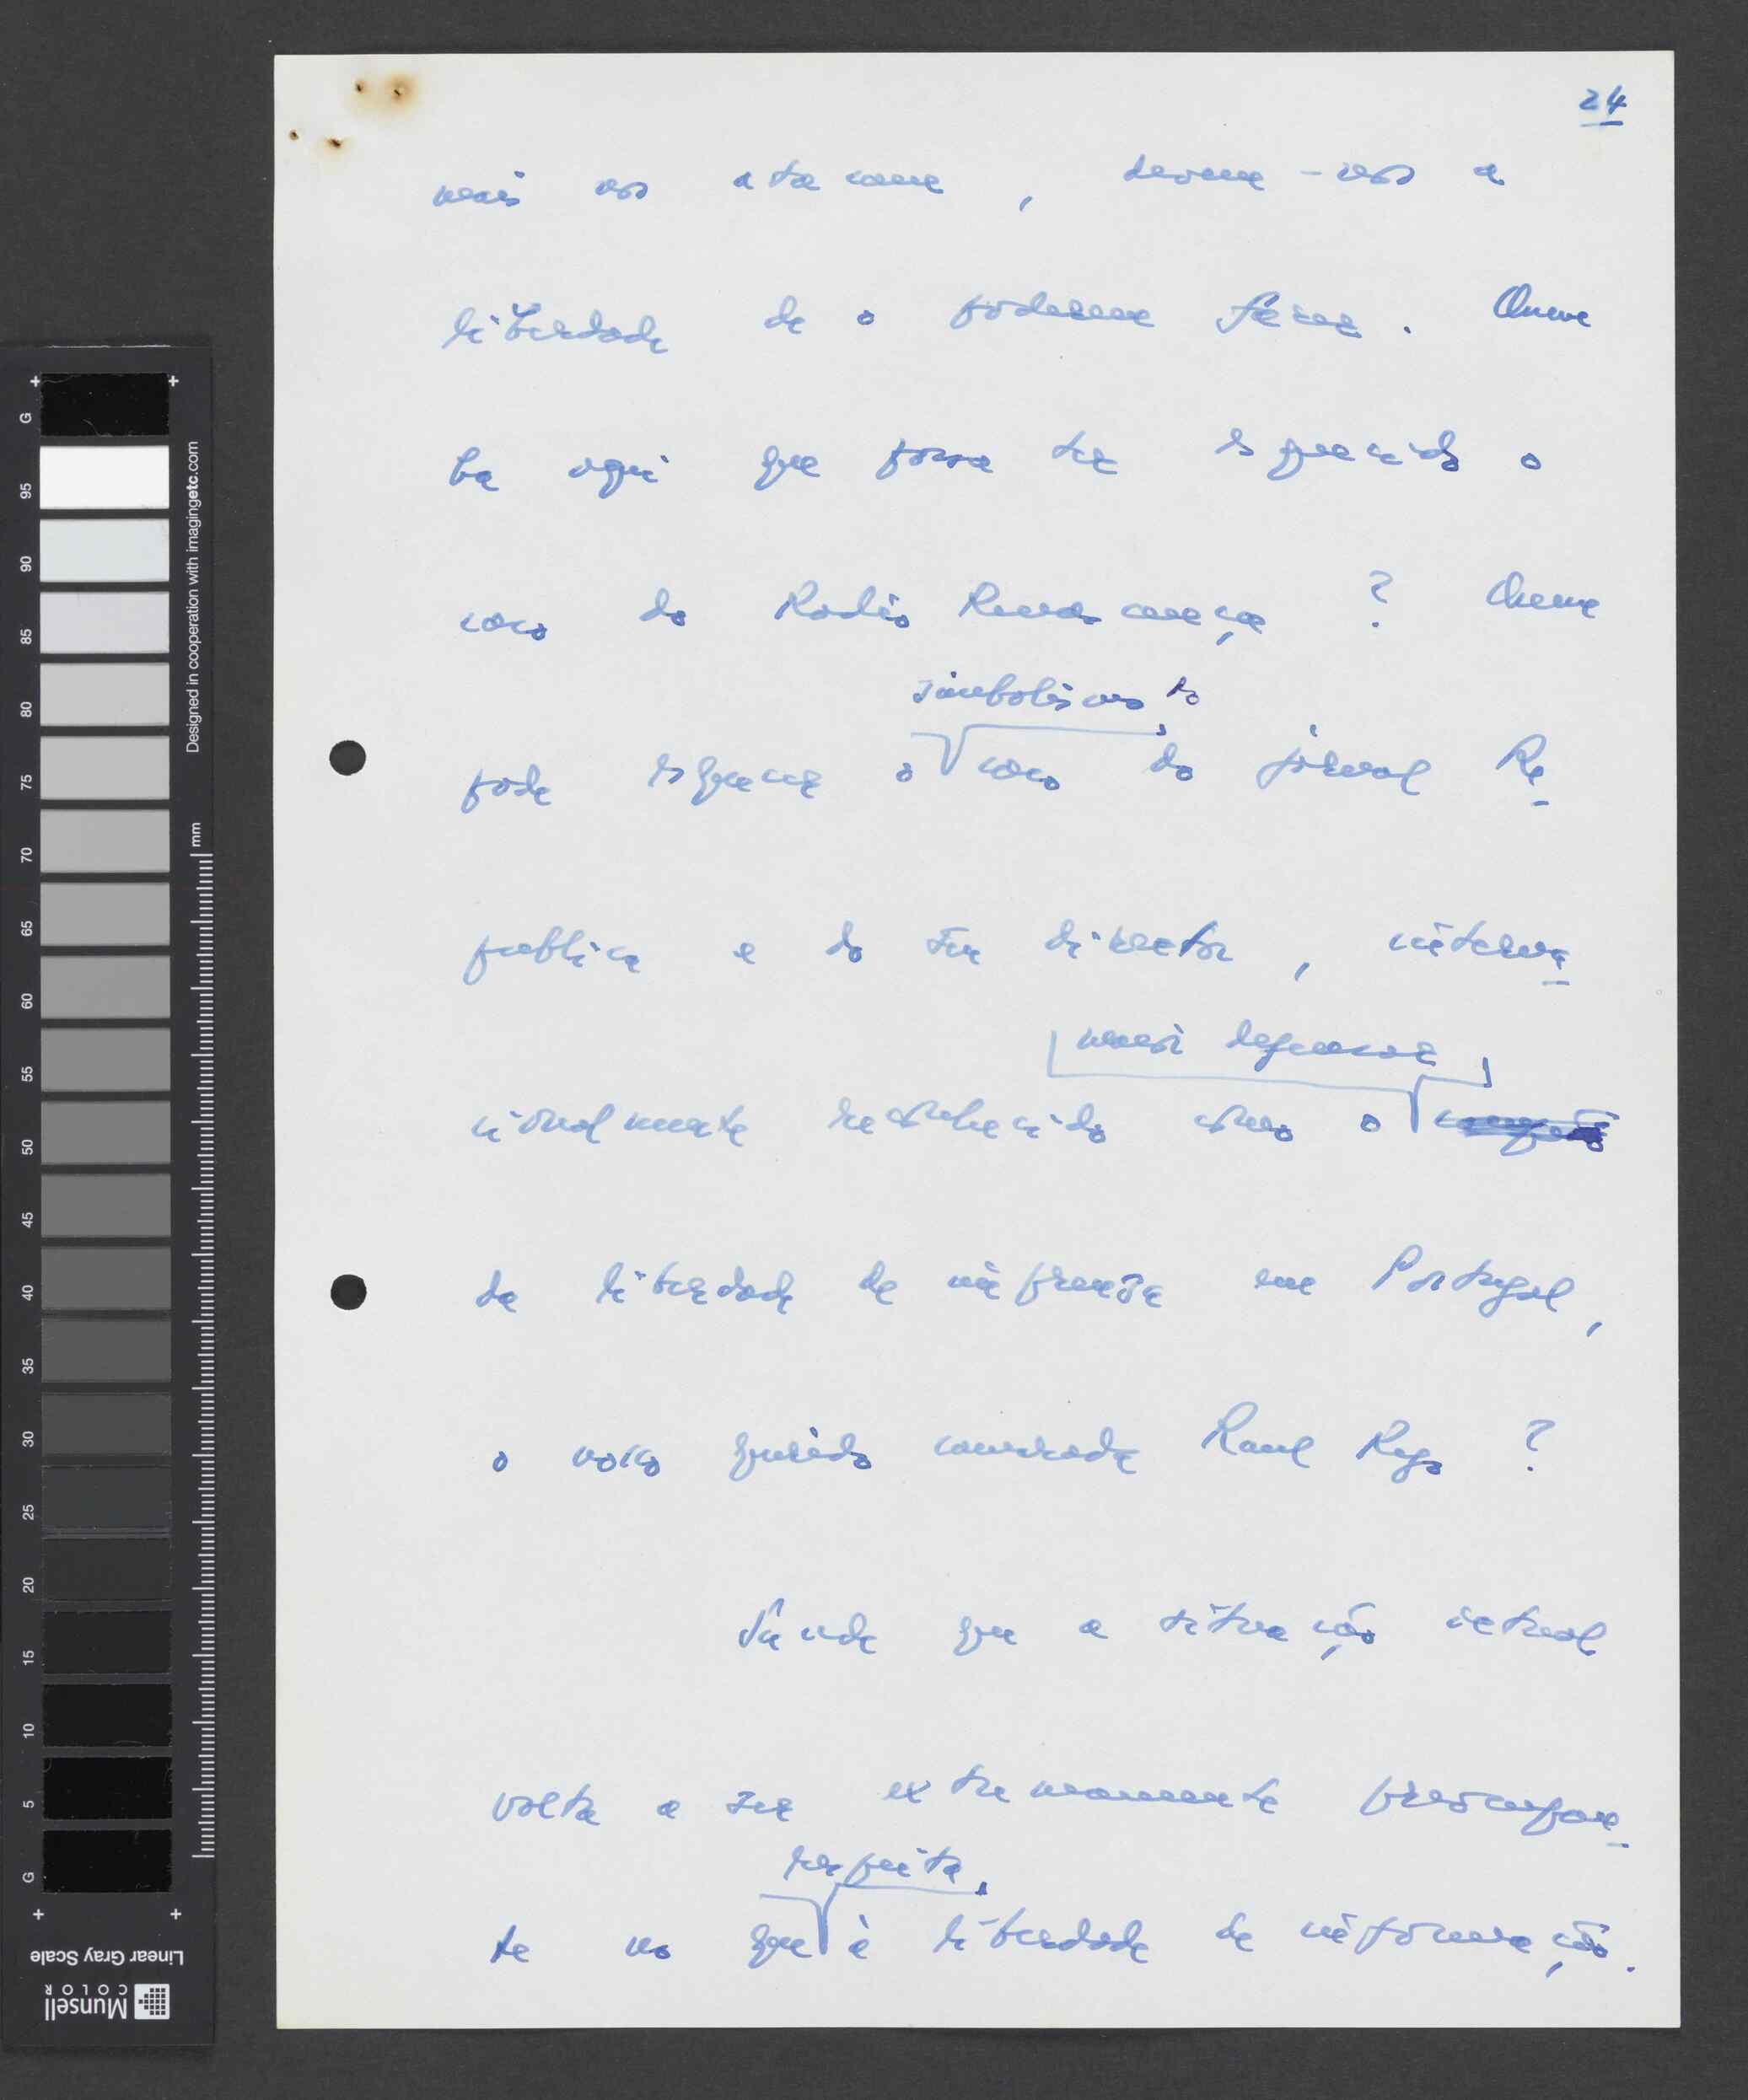 24
mais nos atacam, devem-nos a
liberdade de o poderem fazer. Quem
há aqui que possa ter esquecido o
caso da Radio Renascença? Quem
simbolismo do
pode esquecer o caso do jornal Re-
publica e do seu director, interna-
maior defensor
cionalmente reconhecido como o
da liberdade de imprensa em Portugal,
o nosso querido camarada Raul Rego?
Saude que a situação actual
volta a ser extremamente preocupan-
respeita
te no que à liberdade de informação.
G
95
90
85
80
75
70
65
60
55
50
45
40
35
30
25
20
15
10
5
G
mm
Designed in cooperation with imagingetc.com
Linear Gray Scale
Munsell
COLOR